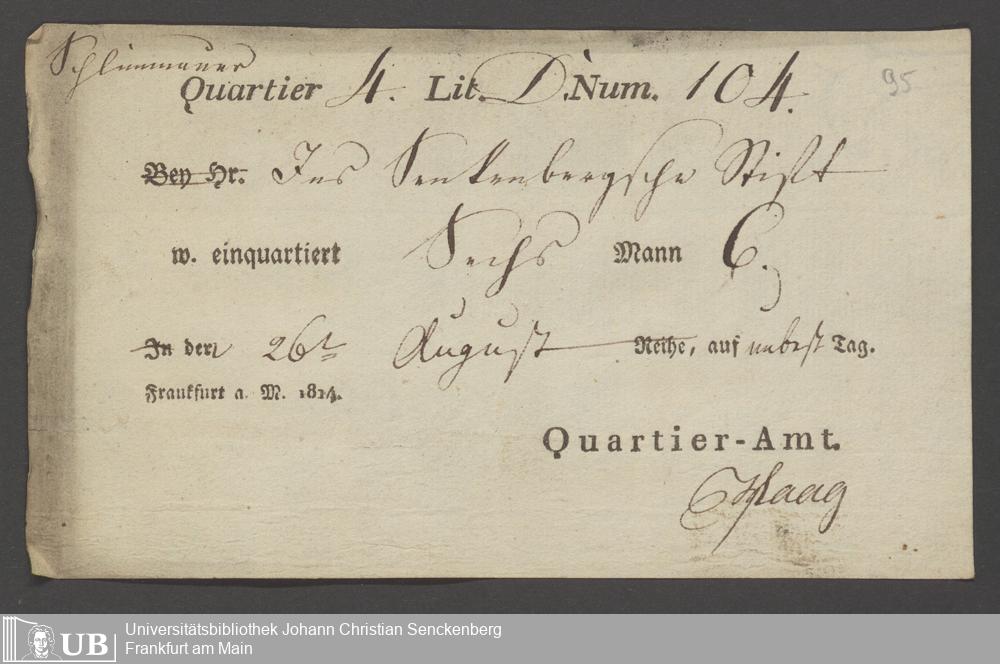 Schlimmauer
Quartier 4. Lit. D. Num. 104.
95
Bey Hr. Ins Senkenbergsche Stift
w. einquartiert Sechs Mann 6.
In der 26t August Reihe, auf unbest Tag.
Frankfurt a. M. 1814.
Quartier-Amt.
Haag
UB
Universitätsbibliothek Johann Christian Senckenberg
Frankfurt am Main